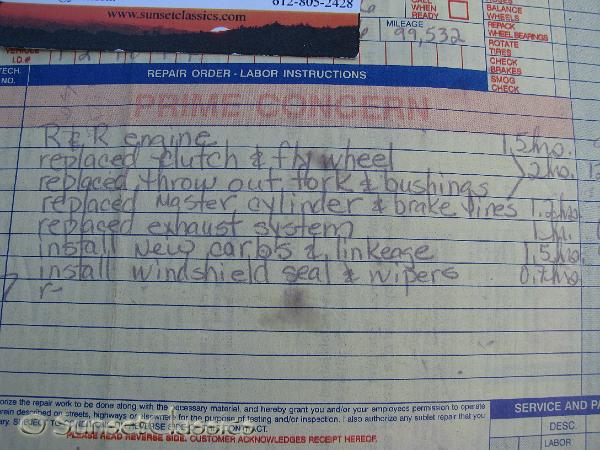 612-805-2428
www.sunsetclassics.com
CALL
WHEN
READY
MILEAGE
99,532
BALANCE
WHEELS
REPACK
WHEEL BEARINGS
ROTATE
TIRES
CHECK
BRAKES
SMOG
CHECK
VEHICLE
I.D.#
TECH.
NO.
REPAIR ORDER - LABOR INSTRUCTIONS
PRIME CONCERN
R & R engine 1.5 hro.
replaced clutch & fly wheel 2 hro.
replaced throw out fork & bushings
replaced Master cylinder & brake lines 1.2 hro
replaced exhaust system 1 hr.
install New carbs & linkeage 1.5 hro
install windshield seal & wipers 0.7 hro.
r-
orize the repair work to be done along with the necessary material, and hereby grant you and/or your employees permission to operate
rein described on streets, highways or elsewhere for the purpose of testing and/or inspection. I also authorize any sublet repair that you
ary. SUBJECT TO CONTACT.
PLEASE READ REVERSE SIDE. CUSTOMER ACKNOWLEDGES RECEIPT HEREOF.
© Sunset Classics
SERVICE AND PA
DESC.
LABOR